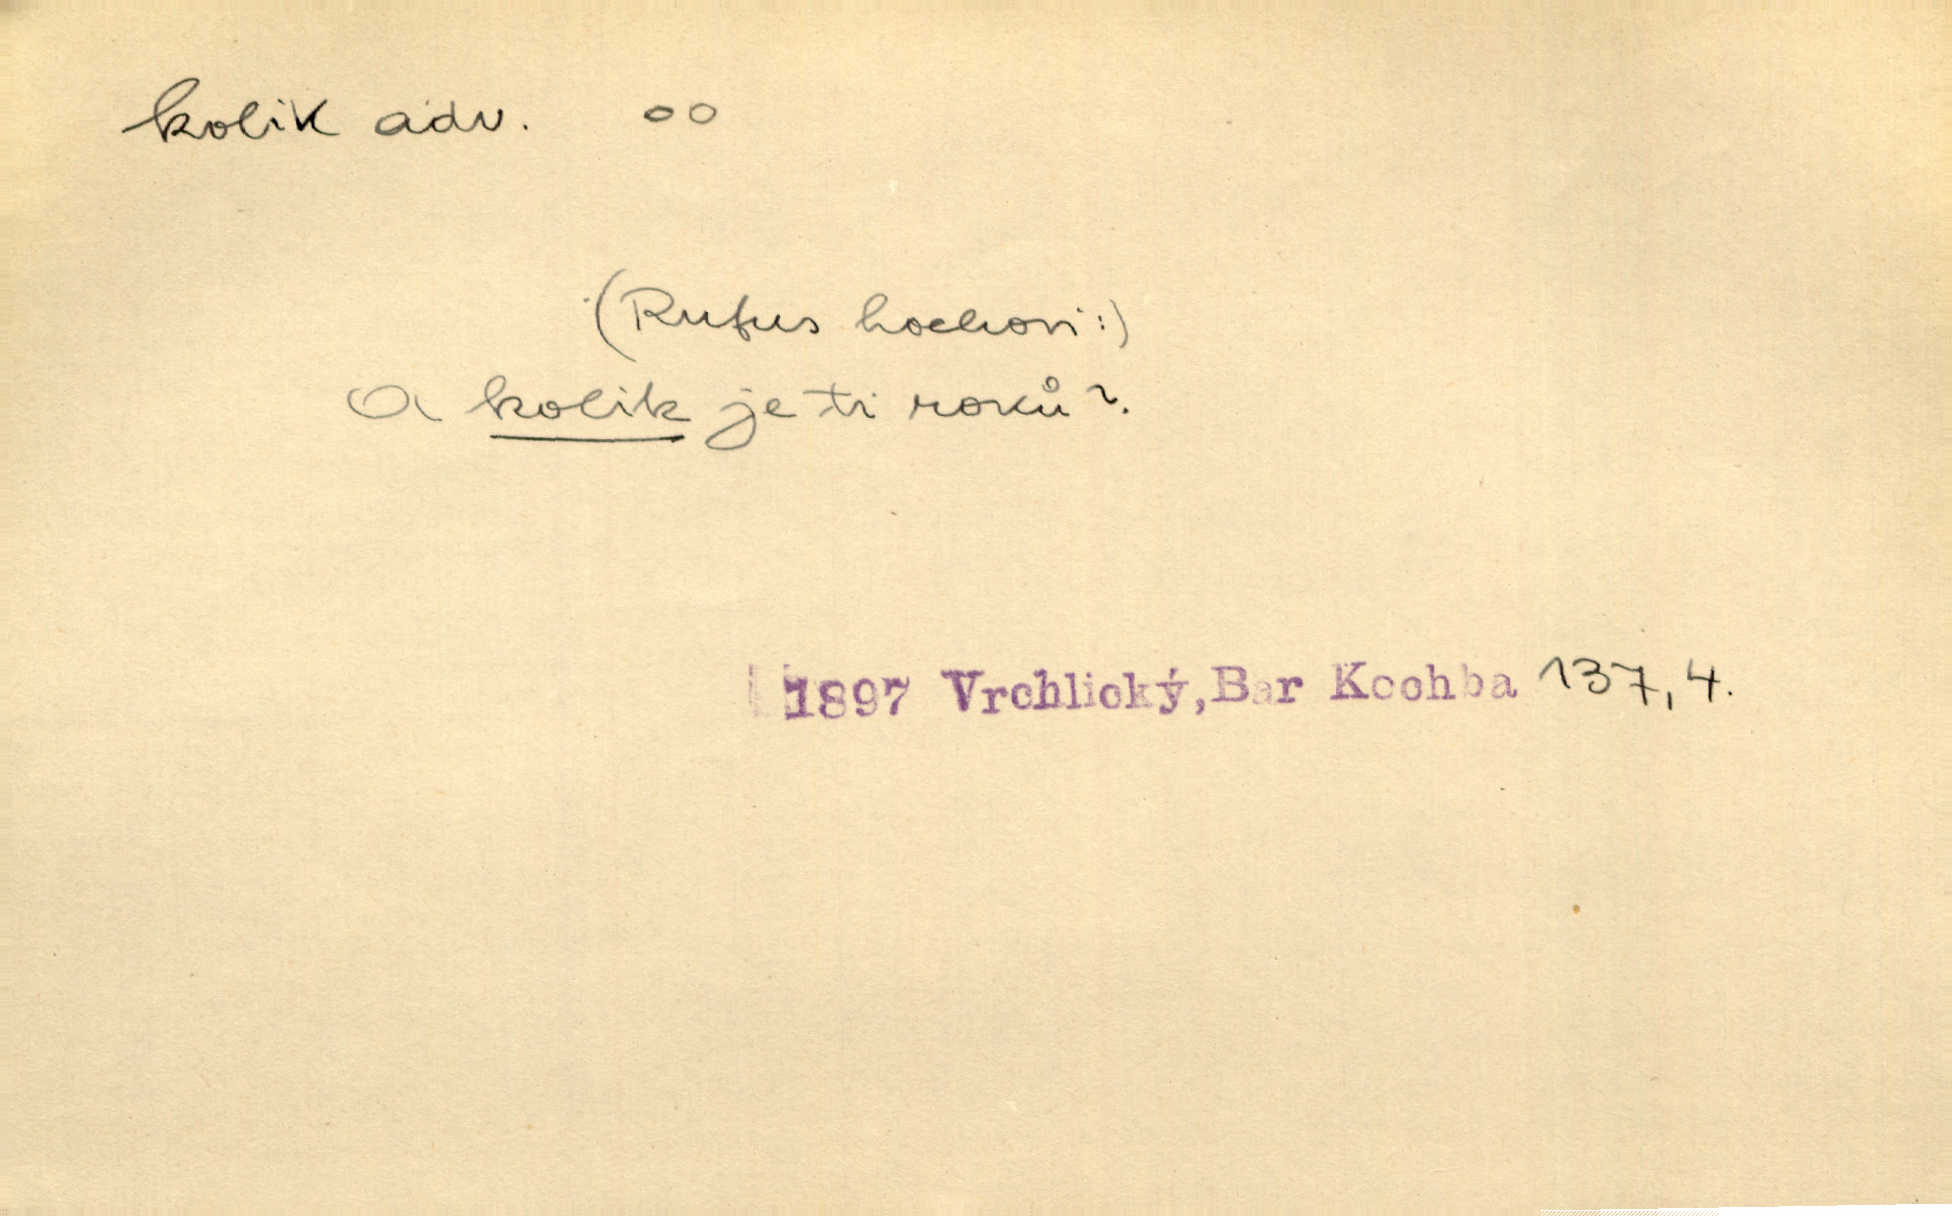 kolik adv. oo
(Rufus hochovi:)
A kolik je ti roků?
1897 Vrchlický, Bar Kochba 137, 4.